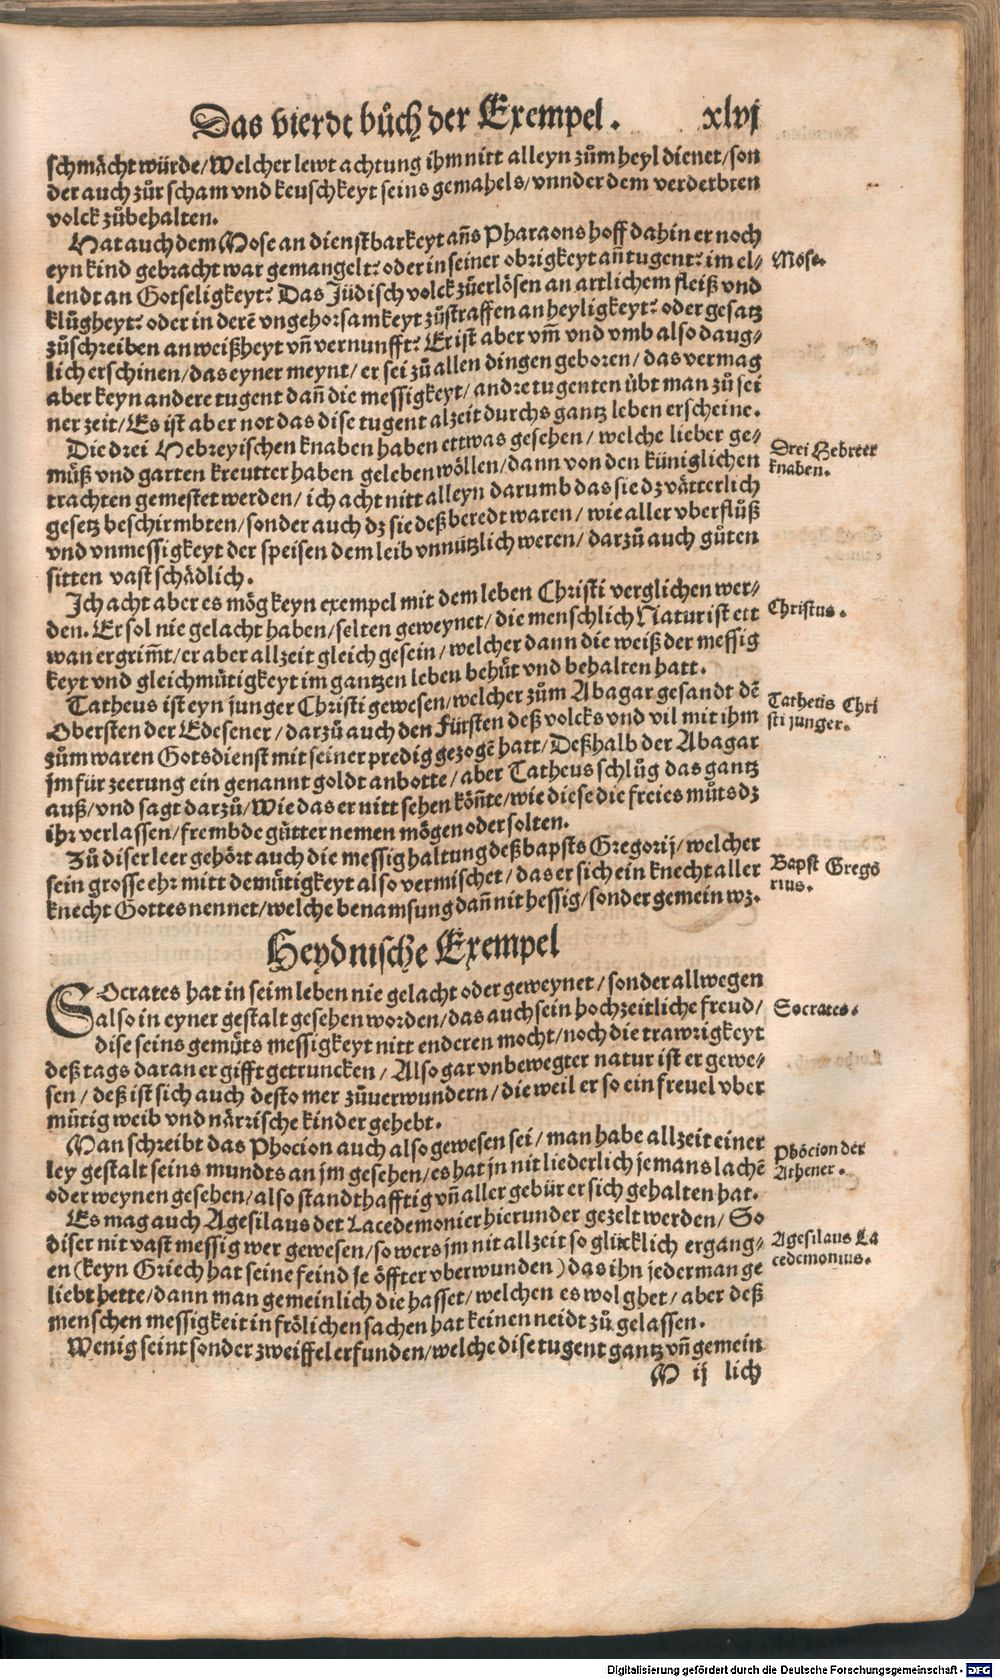 Das vierdt bůch der Exempel. xlvj
schmächt würde/Welcher lewt achtung ihm nitt alleyn zům heyl dienet/son
der auch zůr scham vnd keuschkeyt seins gemahels/vnnder dem verderbten
volck zůbehalten.
Hat auch dem Mose an dienstbarkeyt añs Pharaons hoff dahin er noch
eyn kind gebracht war gemangelt? oder in seiner obrigkeyt añ tugent? im el⸗
lendt an Gotseligkeyt? Das Jüdisch volck zůerlösen an artlichem fleiß vnd
klůgheyt? oder in derẽ vngehorsamkeyt zůstraffen an heyligkeyt? oder gesatz
zůschreiben an weißheyt vñ vernunfft? Er ist aber vm̃ vnd vmb also daug⸗
lich erschinen/das eyner meynt/er sei zů allen dingen geboren/das vermag
aber keyn andere tugent dañ die messigkeyt/andre tugenten übt man zů sei
ner zeit/Es ist aber not das dise tugent alzeit durchs gantz leben erscheine.
Die drei Hebreyischen knaben haben ettwas gesehen/welche lieber ge⸗
můß vnd garten kreutter haben geleben wöllen/dann von den küniglichen
trachten gemestet werden/ich acht nitt alleyn darumb das sie dz vätterlich
gesetz beschirmbten/sonder auch dz sie deß beredt waren/wie aller vberfluß
vnd vnmessigkeyt der speisen dem leib vnnützlich weren/darzů auch gůten
sitten vast schädlich.
Ich acht aber es mög keyn exempel mit dem leben Christi verglichen wer⸗
den. Er sol nie gelacht haben/selten geweynet/die menschlich Natur ist ett
wan ergrim̃t/er aber allzeit gleich gesein/welcher dann die weiß der messig
keyt vnd gleichmütigkeyt im gantzen leben behüt vnd behalten hatt.
Tatheus ist eyn junger Christi gewesen/welcher zům Abagar gesandt dẽ
Obersten der Edesener/darzů auch den Fürsten deß volcks vnd vil mit ihm
zům waren Gotsdienst mit seiner predig gezogẽ hatt/Deßhalb der Abagar
jm für zeerung ein genannt goldt anbotte/aber Tatheus schlůg das gantz
auß/vnd sagt darzů/Wie das er nitt sehen köñte/wie diese die freies můts dz
ihr verlassen/frembde gütter nemen mögen oder solten.
Zů diser leer gehört auch die messig haltung deß bapsts Gregorij/welcher
sein grosse ehr mitt demütigkeyt also vermischet/das er sich ein knecht aller
knecht Gottes nennet/welche benamsung dañ nit hessig/sonder gemein wz.
Mose.
Drei Hebreer
knaben.
Christus.
Tatheus Chri
sti junger.
Bapst Grego
rius.
Heydnische Exempel
SOcrates hat in seim leben nie gelacht oder geweynet/sonder allwegen
also in eyner gestalt gesehen worden/das auch sein hochzeitliche freud/
dise seins gemüts messigkeyt nitt enderen mocht/noch die trawrigkeyt
deß tags daran er gifft getruncken/Also gar vnbewegter natur ist er gewe⸗
sen/deß ist sich auch desto mer zůuerwundern/die weil er so ein freuel vber
mütig weib vnd närrische kinder gehebt.
Man schreibt das Phocion auch also gewesen sei/man habe allzeit einer
ley gestalt seins mundts an jm gesehen/es hat jn nit liederlich jemans lachẽ
oder weynen gesehen/also standthafftig vñ aller gebür er sich gehalten hat.
Es mag auch Agesilaus der Lacedemonier hierunder gezelt werden/So
diser nit vast messig wer gewesen/so wers jm nit allzeit so glücklich ergang⸗
en (keyn Griech hat seine feind je öffter vberwunden) das ihn jederman ge
liebt hette/dann man gemeinlich die hasset/welchen es wol ghet/aber deß
menschen messigkeit in frölichen sachen hat keinen neidt zů gelassen.
Wenig seint sonder zweiffel erfunden/welche dise tugent gantz vñ gemein
M ij lich
Socrates.
Phocion der
Athener.
Agesilaus La
cedemonius.
Digitalisierung gefördert durch die Deutsche Forschungsgemeinschaft - DFG